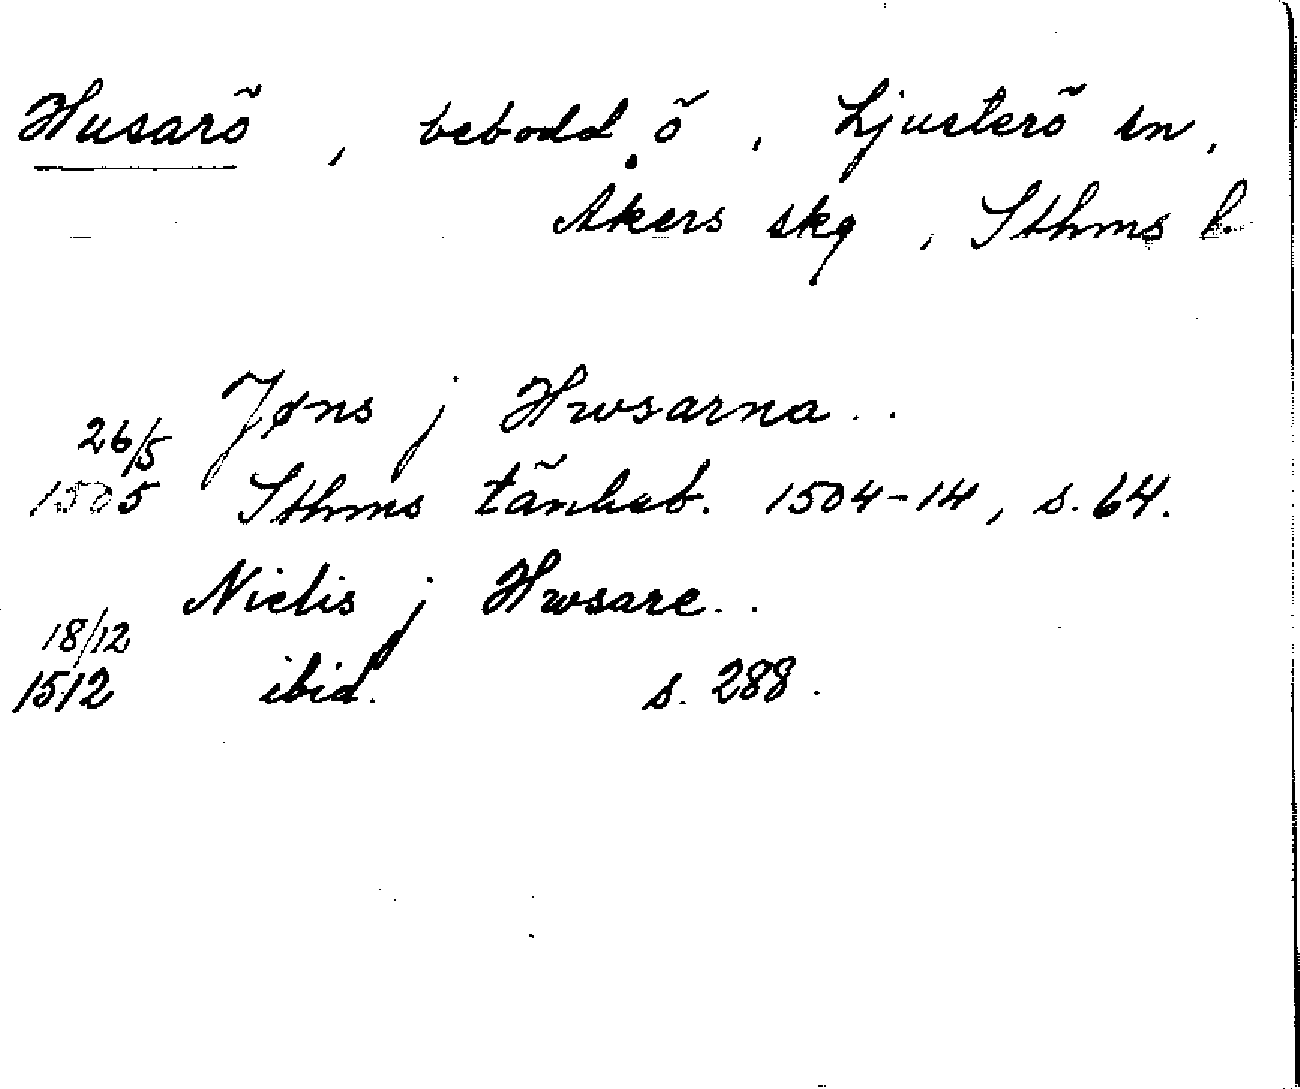 Husarö, bebodd ö, Ljusterö sn,
Åkers skg, Sthms l.
Jøns j Hwsarna..
26/5
1505 Sthms tänkeb. 1504-14, s. 64.
Nielis j Hwsare..
18/12
1512 ibid. s. 288.